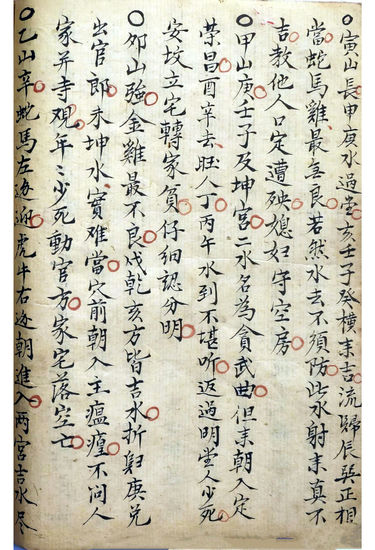 〇寅山長甲庚水過堂亥壬子癸橫来吉流歸辰巽正相
當蛇馬雞最無良若然水去不須防此水射来真不
吉教他人口定遭殃媳妇守空房
〇甲山庚壬子及坤宮二水名為貪武曲但来朝入定
荣昌酉辛去旺人丁丙午水到不堪听返過明堂人少死
安坟立宅轉家貧仔细認分明
〇卯山強金雞最不良戌乾亥方皆吉水折歸庚兌
出官郎未坤水實难當穴前朝入主瘟瘽不问人
家并寺观年〻少死動官方家宅落空亡
〇乙山辛蛇馬左边迎虎牛右边朝進入两宮吉水尽